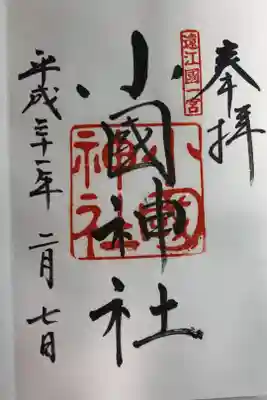 奉拝
遠江國一宮
小國神社
小國神社
平成三十一年二月七日